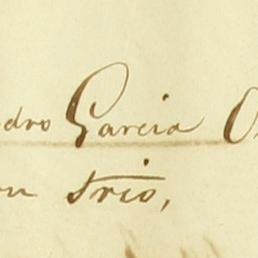 dro Garcia O
n Trio,